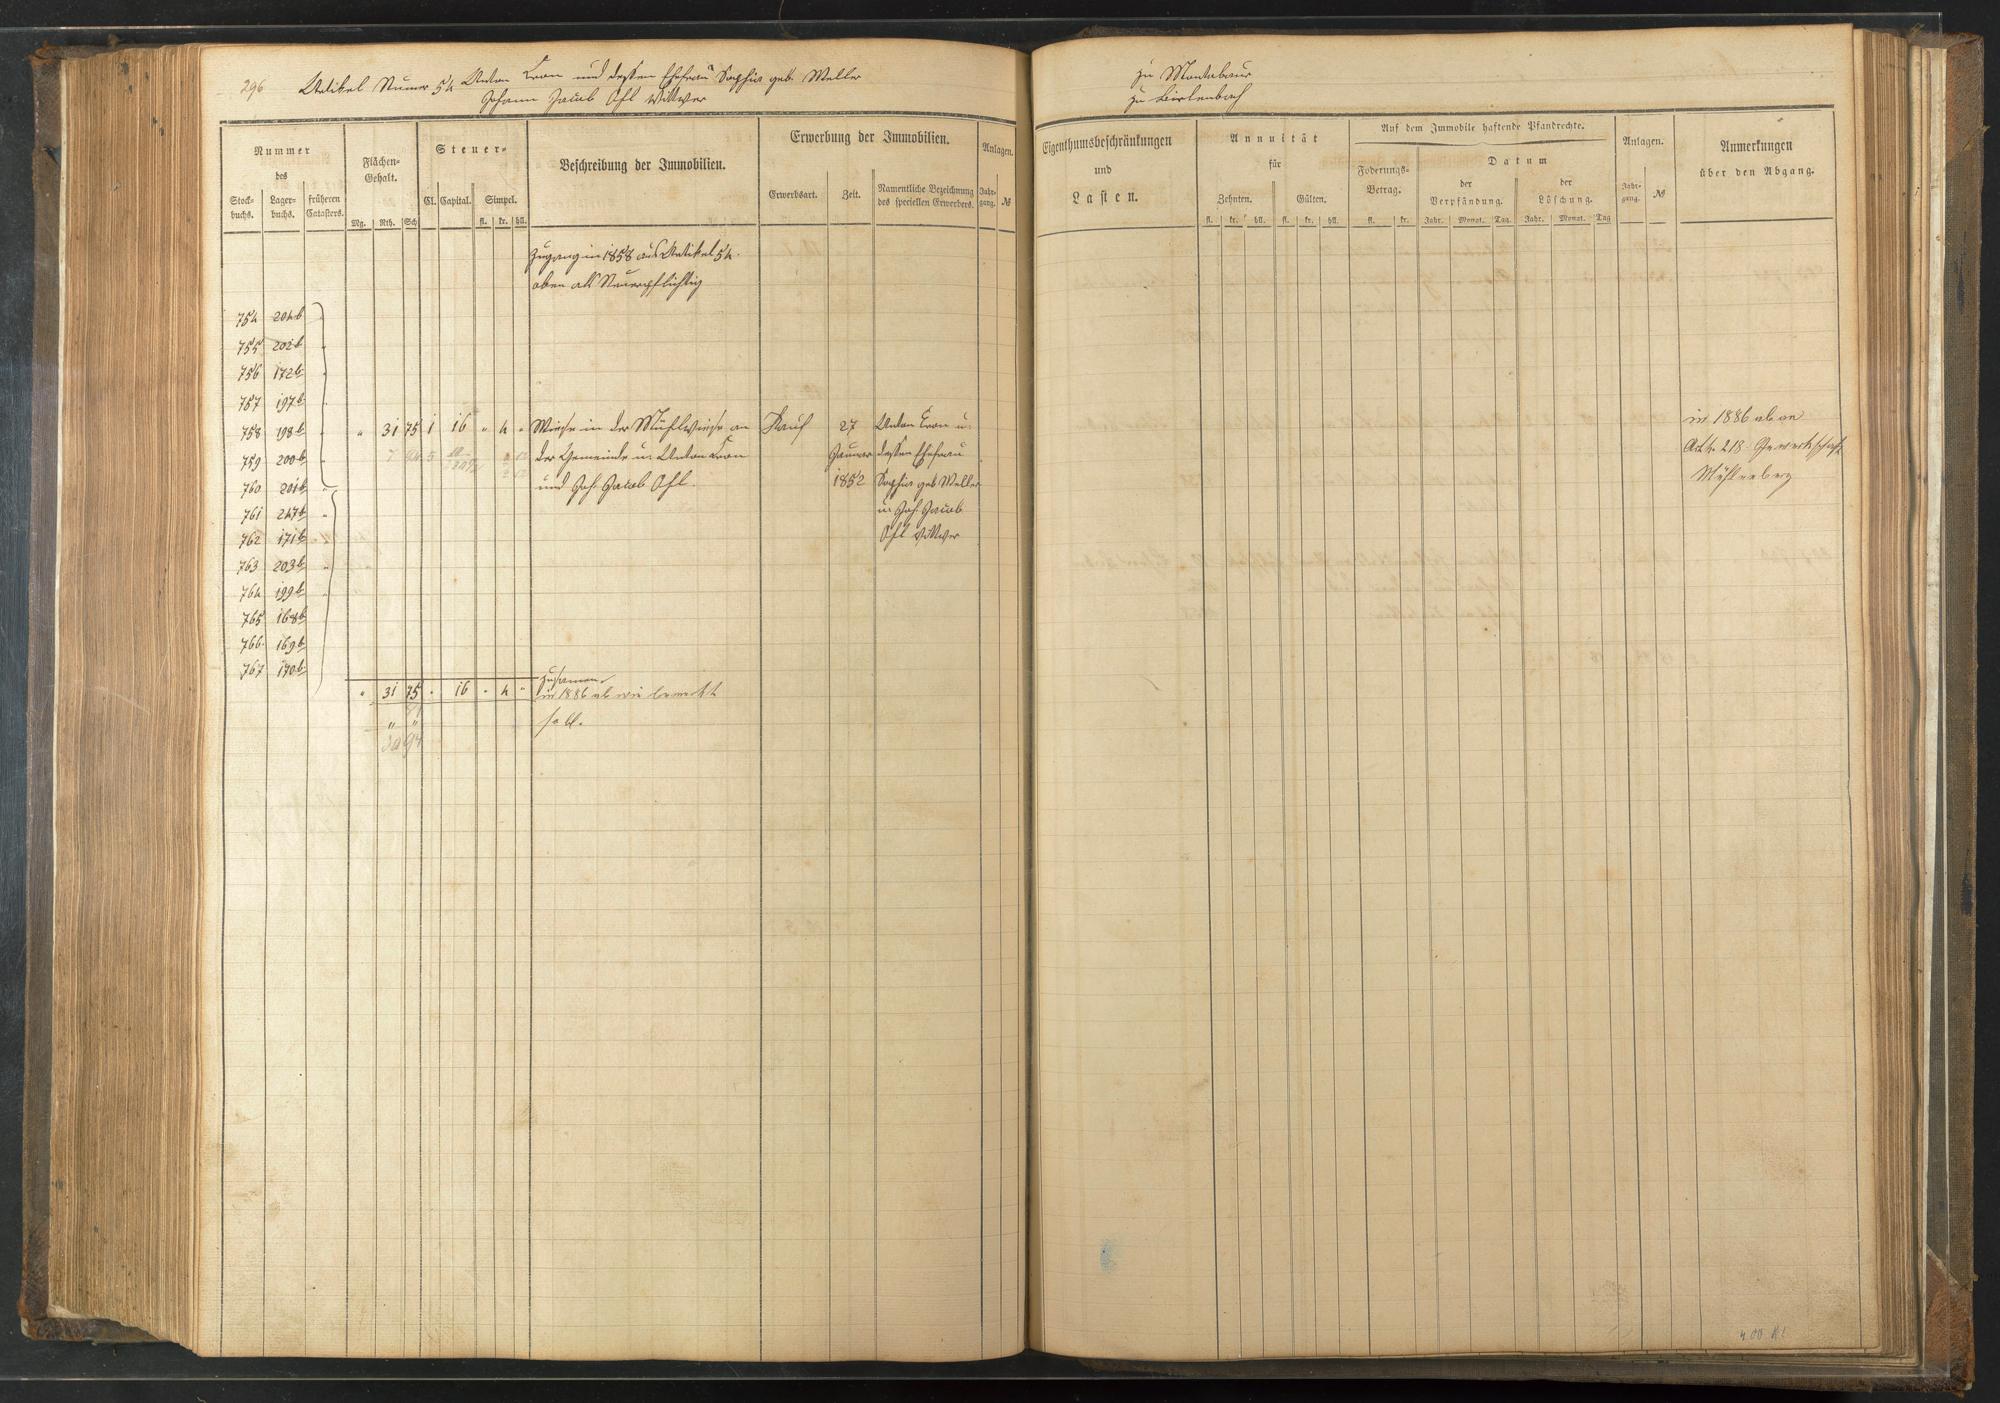 296 Artikel Numer 54 Anton Cron und dessen Ehefrau Sophia geb. Weller
Johann Jacob Ohl Wittwer
Nummer
des
Stock-
buchs.
Lager-
buchs.
früheren
Catasters.
Flächen-
Gehalt.
Mg. Rth. Sch
Steuer-
Cl. Capital. Simpel.
fl. kr. hll.
Beschreibung der Immobilien.
Erwerbung der Immobilien.
Erwerbsart. Zeit.
Namentliche Bezeichnung
des speciellen Erwerbers.
Anlagen.
Jahr-
gang. №
Zugang in 1858 aus Artikel 54.
oben als Steuerpflichtig
754 204b
755 202b
756 172b
757 197b
758 198b " 31 75 1 16 " 4 " Wiese in der Mühlwiese an Kauf 27 Anton Cron u.
759 200b der Gemeinde u. Anton Cron Januar dessen Ehefrau
760 201b und Joh. Jacob Ohl. 1852 Sophia geb Weller
761 247b u. Joh. Jacob
762 171b Ohl Wittwer
763 203b
764 199b
765 168b
766. 169b
767 170b
zusamen
" 31 75 " 16 " 4 " in 1886 ab wie bemerkt
" "
30 94
zu Montabaur
zu Birlenbach
Eigenthumsbeschränkungen
und
Lasten.
Annuität
für
Zehnten. Gülten.
fl. kr. hll. fl. kr. hll.
Auf dem Immobile haftende Pfandrechte.
Foderungs-
Betrag.
fl. kr.
Datum
der
Verpfändung.
Jahr. Monat. Tag.
der
Löschung.
Jahr. Monat. Tag
Anlagen.
Jahr-
gang. №
Anmerkungen
über den Abgang.
in 1886 ab an
Art. 218 Gewerkschaft
Mühlenberg